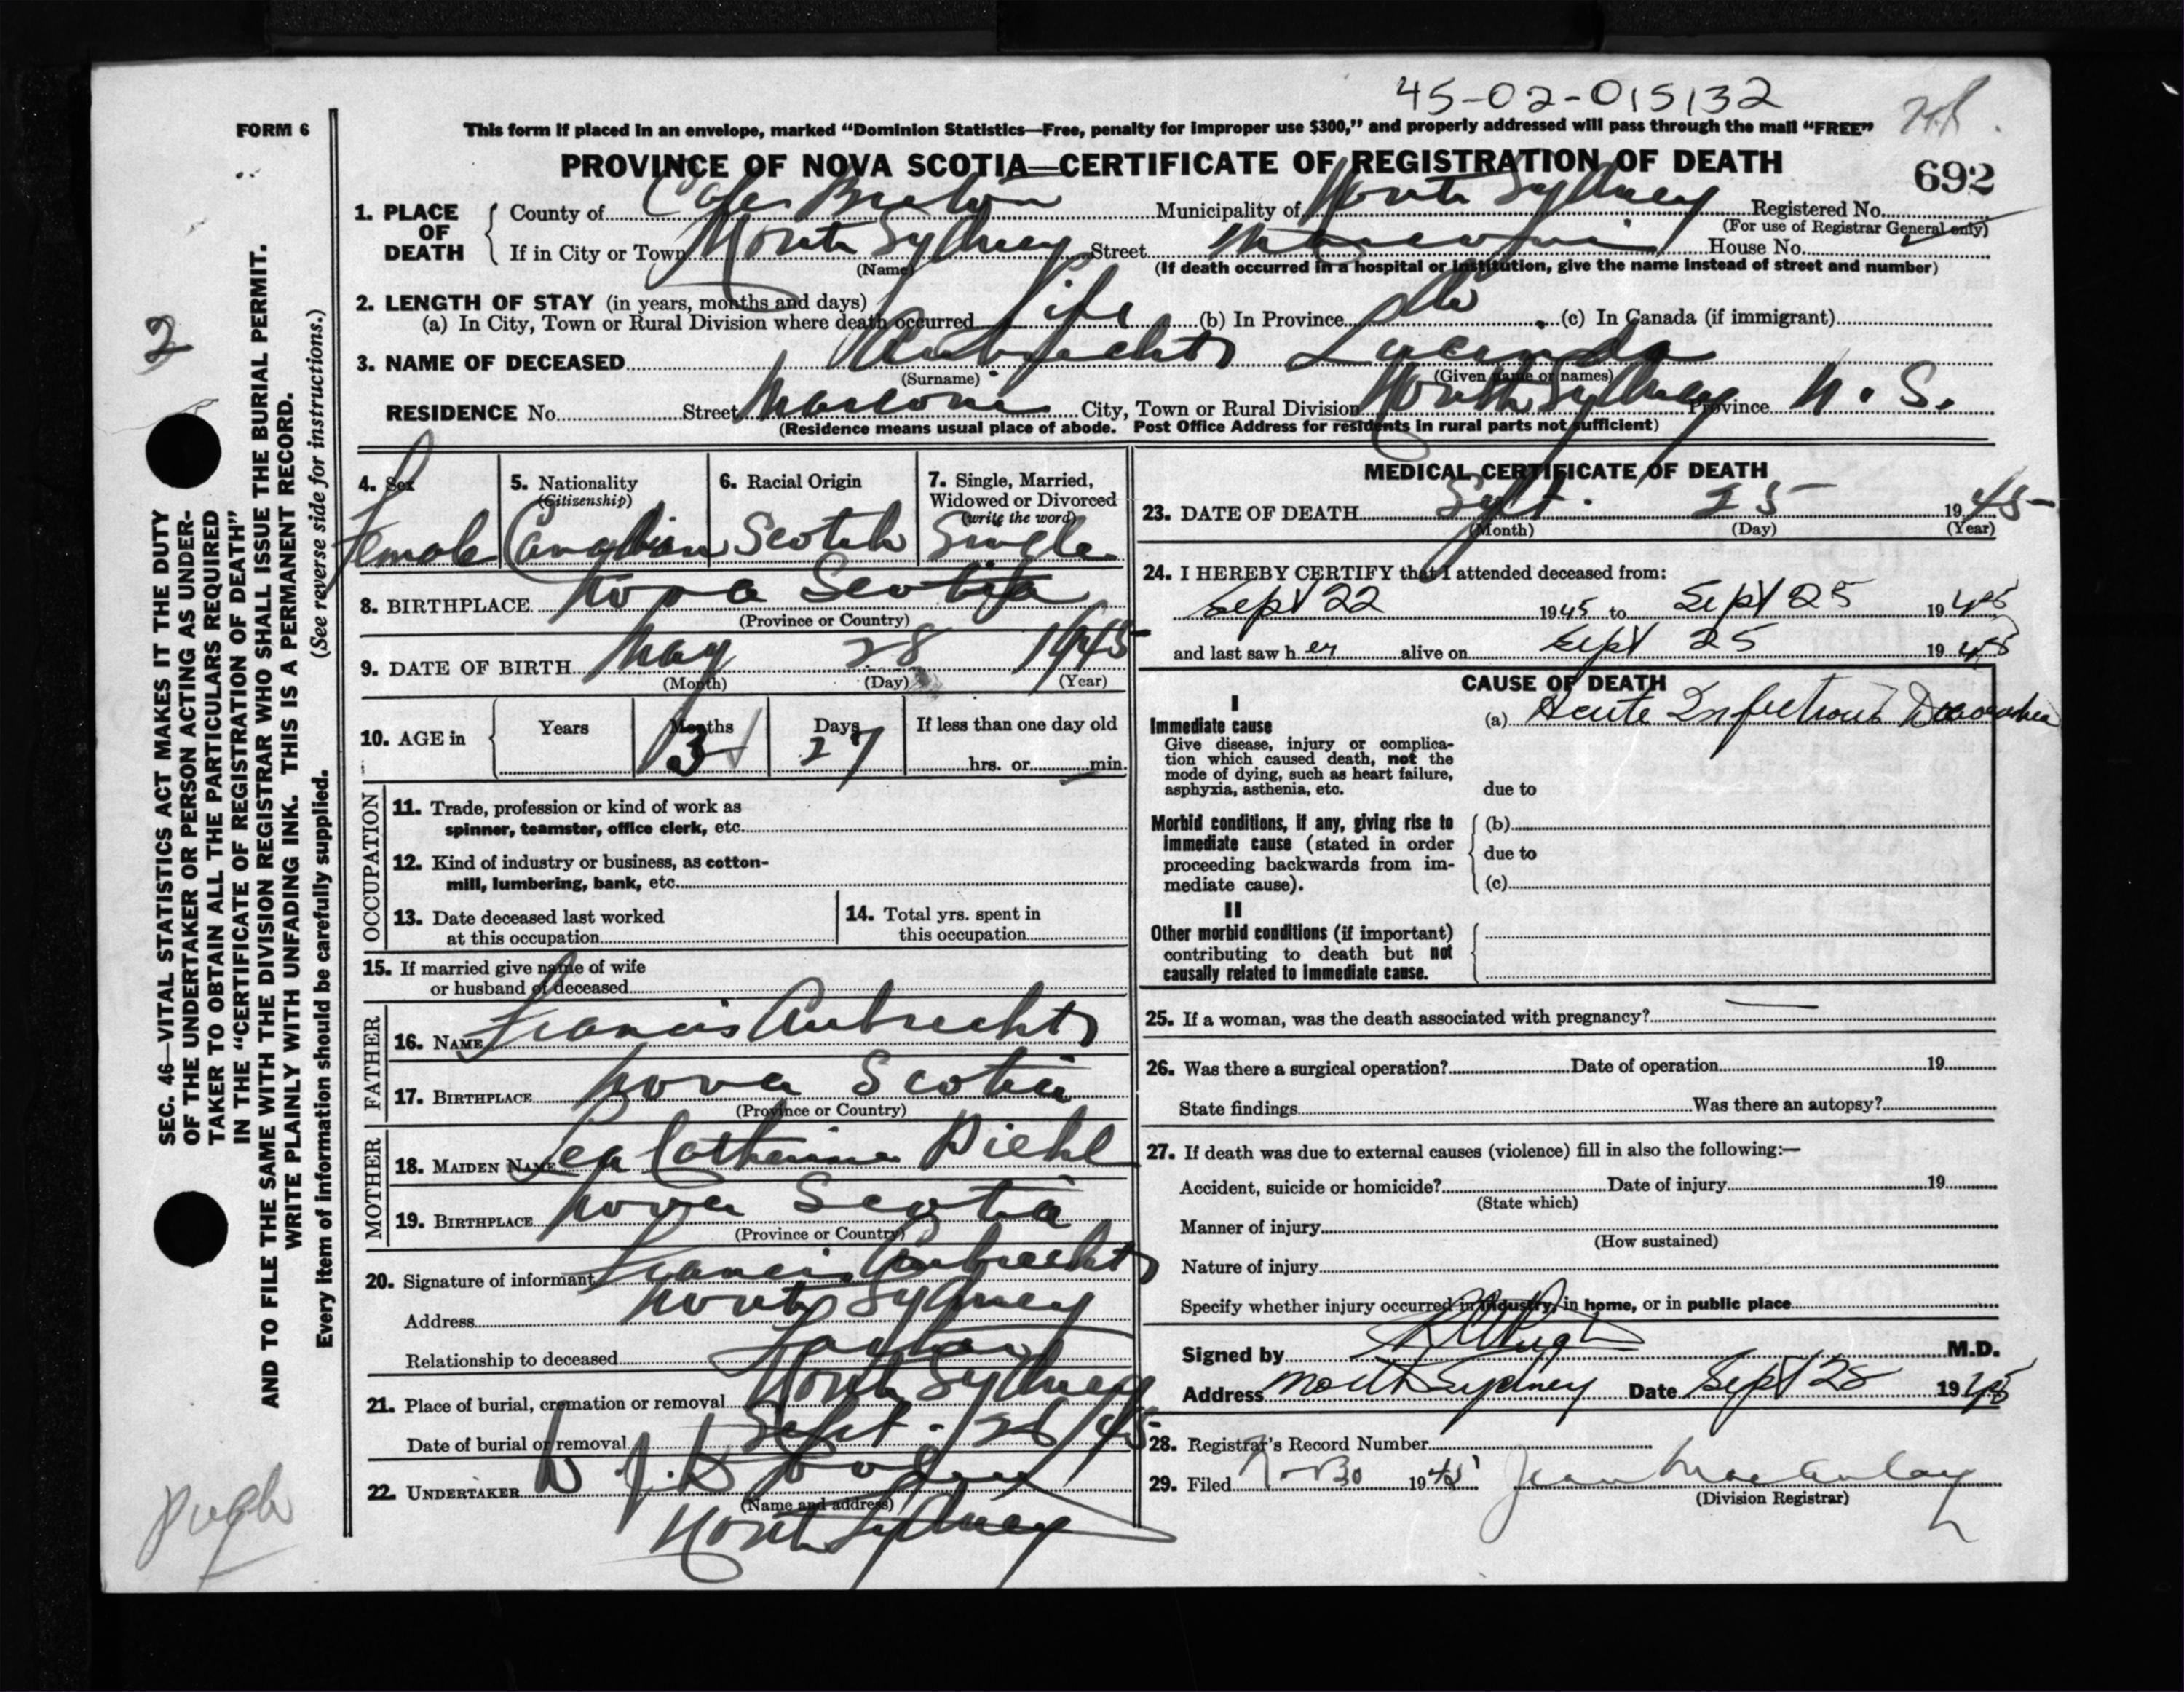 45-02-015132
FORM 6
This form if placed in an envelope, marked "Dominion Statistics—Free, penalty for improper use $300," and properly addressed will pass through the mail "FREE"
PROVINCE OF NOVA SCOTIA—CERTIFICATE OF REGISTRATION OF DEATH
692
1. PLACE OF DEATH
County of Cape Breton Municipality of North Sydney Registered No.
(For use of Registrar General only)
If in City or Town North Sydney Street Marconi House No.
(Name)
(If death occurred in a hospital or institution, give the name instead of street and number)
2. LENGTH OF STAY (in years, months and days)
(a) In City, Town or Rural Division where death occurred Life (b) In Province do (c) In Canada (if immigrant)
3. NAME OF DECEASED Aubrecht Lucinda
(Surname) (Given name or names)
RESIDENCE No. Street Marconi City, Town or Rural Division North Sydney Province N. S.
(Residence means usual place of abode. Post Office Address for residents in rural parts not sufficient)
4. Sex
Female
5. Nationality
(Citizenship)
Canadian
6. Racial Origin
Scotch
7. Single, Married,
Widowed or Divorced
(write the word)
Single
8. BIRTHPLACE Nova Scotia
(Province or Country)
9. DATE OF BIRTH May 28 1945
(Month) (Day) (Year)
10. AGE in
Years Months Days If less than one day old
3 27 hrs. or min.
OCCUPATION
11. Trade, profession or kind of work as
spinner, teamster, office clerk, etc.
12. Kind of industry or business, as cotton-
mill, lumbering, bank, etc.
13. Date deceased last worked
at this occupation
14. Total yrs. spent in
this occupation
15. If married give name of wife
or husband of deceased
FATHER
16. NAME Francis Aubrecht
17. BIRTHPLACE Nova Scotia
(Province or Country)
MOTHER
18. MAIDEN NAME Lea Catherine Diehl
19. BIRTHPLACE Nova Scotia
(Province or Country)
20. Signature of informant Francis Aubrecht
Address North Sydney
Relationship to deceased Father
21. Place of burial, cremation or removal North Sydney
Date of burial or removal Sept. 26 45
22. UNDERTAKER
(Name and address)
North Sydney
MEDICAL CERTIFICATE OF DEATH
23. DATE OF DEATH Sept. 25 1945
(Month) (Day) (Year)
24. I HEREBY CERTIFY that I attended deceased from:
Sept 22 1945 to Sept 25 1945
and last saw her alive on Sept 25 1945
CAUSE OF DEATH
I
Immediate cause
Give disease, injury or complica-
tion which caused death, not the
mode of dying, such as heart failure,
asphyxia, asthenia, etc.
(a) Acute Infectious Diarrohea
due to
Morbid conditions, if any, giving rise to
immediate cause (stated in order
proceeding backwards from im-
mediate cause).
(b)
due to
(c)
II
Other morbid conditions (if important)
contributing to death but not
causally related to immediate cause.
25. If a woman, was the death associated with pregnancy? —
26. Was there a surgical operation? Date of operation 19
State findings Was there an autopsy?
27. If death was due to external causes (violence) fill in also the following:—
Accident, suicide or homicide? Date of injury 19
(State which)
Manner of injury
(How sustained)
Nature of injury
Specify whether injury occurred in industry, in home, or in public place
Signed by Pugh M.D.
Address North Sydney Date Sept 28 1945
28. Registrar's Record Number
29. Filed 1945 Jean MacAulay
(Division Registrar)
2
SEC. 46—VITAL STATISTICS ACT MAKES IT THE DUTY
OF THE UNDERTAKER OR PERSON ACTING AS UNDER-
TAKER TO OBTAIN ALL THE PARTICULARS REQUIRED
IN THE "CERTIFICATE OF REGISTRATION OF DEATH"
AND TO FILE THE SAME WITH THE DIVISION REGISTRAR WHO SHALL ISSUE THE BURIAL PERMIT.
WRITE PLAINLY WITH UNFADING INK. THIS IS A PERMANENT RECORD.
Every item of information should be carefully supplied. (See reverse side for instructions.)
Pugh